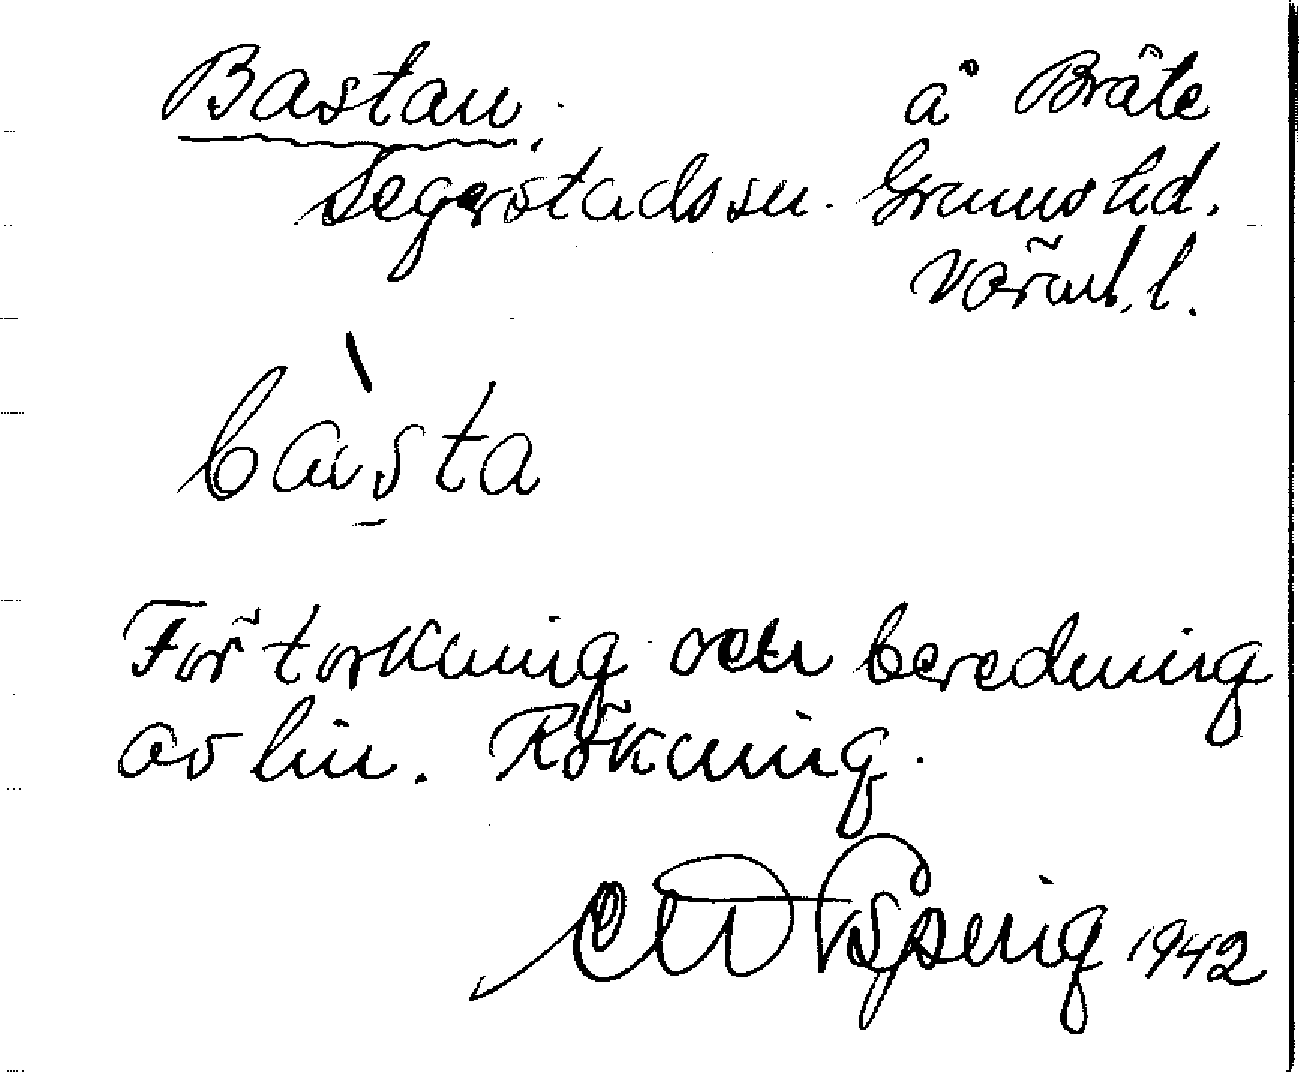 Bastan. å Bråte
Segerstads sn. Grums hd.
Värml. l.
bàsta
För torkning och beredning
av lin. Rökning.
1942